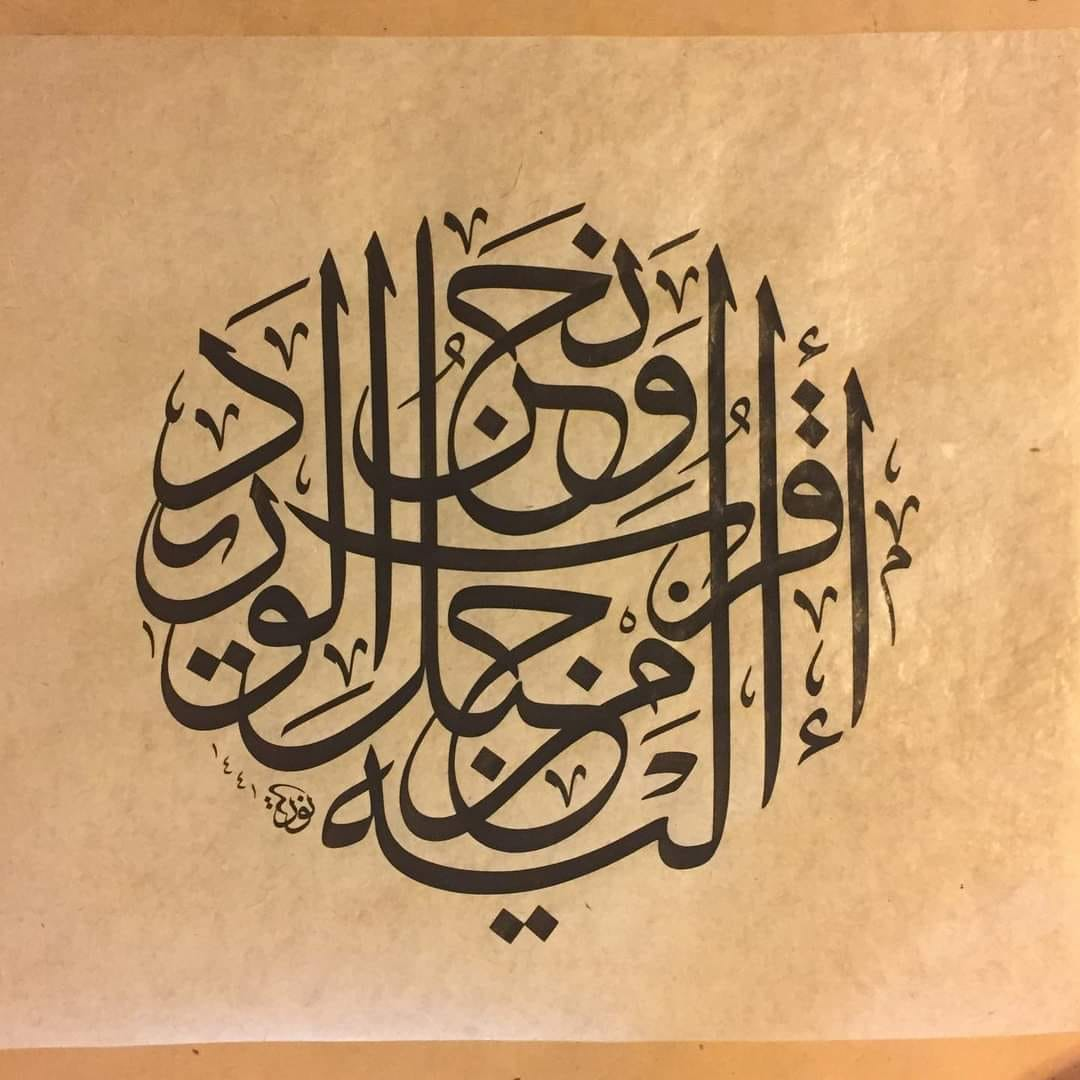 وَنَحْنُ أَقْرَبُ إِلَيْهِ مِنْ حَبْلِ الْوَرِيدِ
١٤٤١